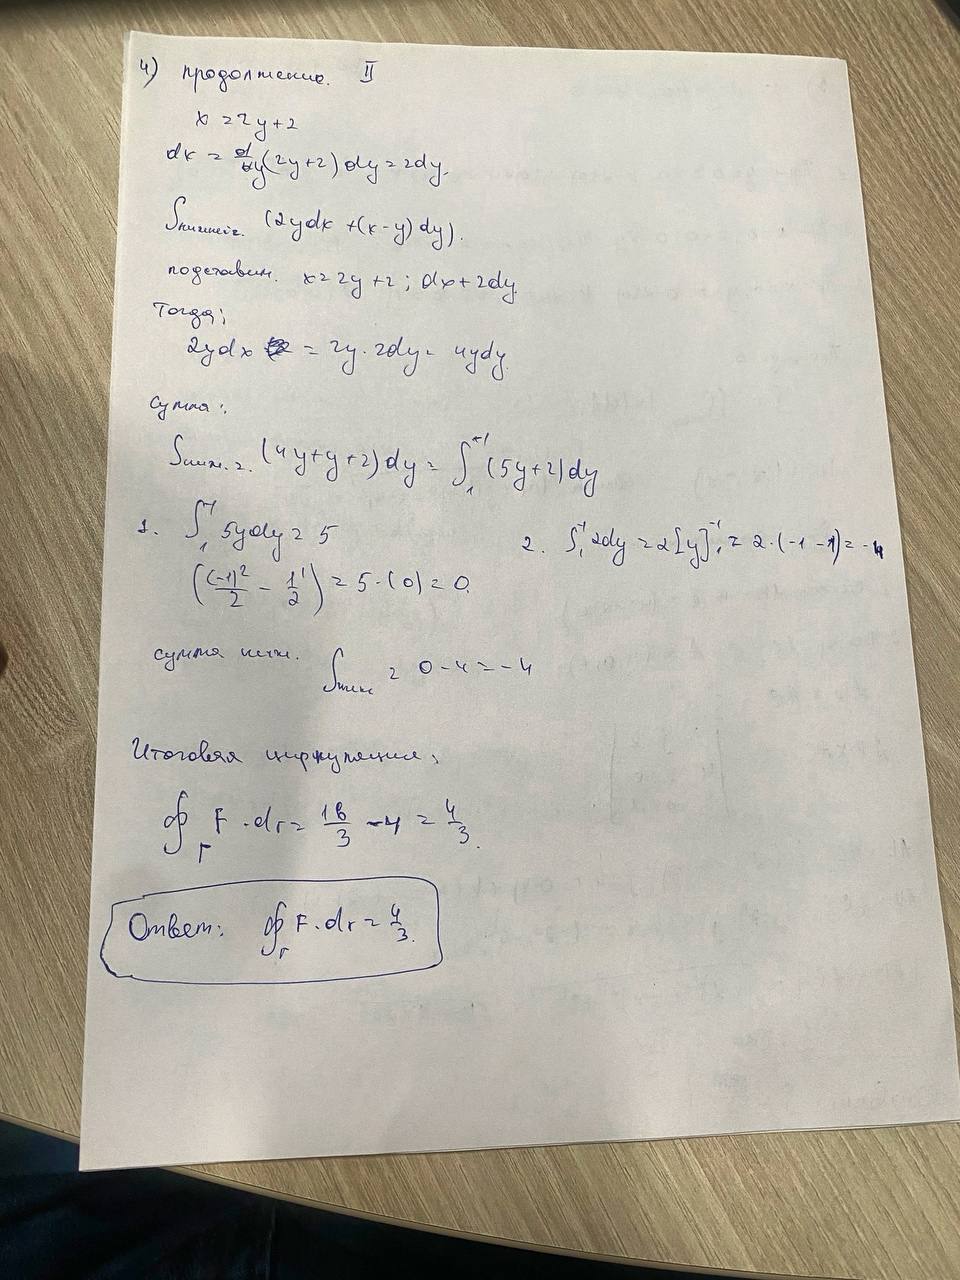 4) продолжение. II
x = 2y+2
dx = d/dy (2y+2) dy = 2dy.
∫нижнег. (2ydx + (x-y) dy).
подставим. x = 2y+2 ; dx + 2dy.
Тогда;
2ydx = 2y · 2dy = 4ydy.
сумма:
∫ниж. г. (4y+y+2) dy = ∫₁⁻¹ (5y+2) dy
1. ∫₁⁻¹ 5ydy = 5
((-1)²/2 - 1¹/2) = 5·(0) = 0.
2. ∫₁⁻¹ 2dy = 2[y]₁⁻¹ = 2·(-1-1) = -4
сумма ниж. ∫ниж = 0-4 = -4
Итоговая циркуляция:
∮Γ F · dr = 16/3 - 4 = 4/3.
Ответ: ∮Γ F · dr = 4/3.